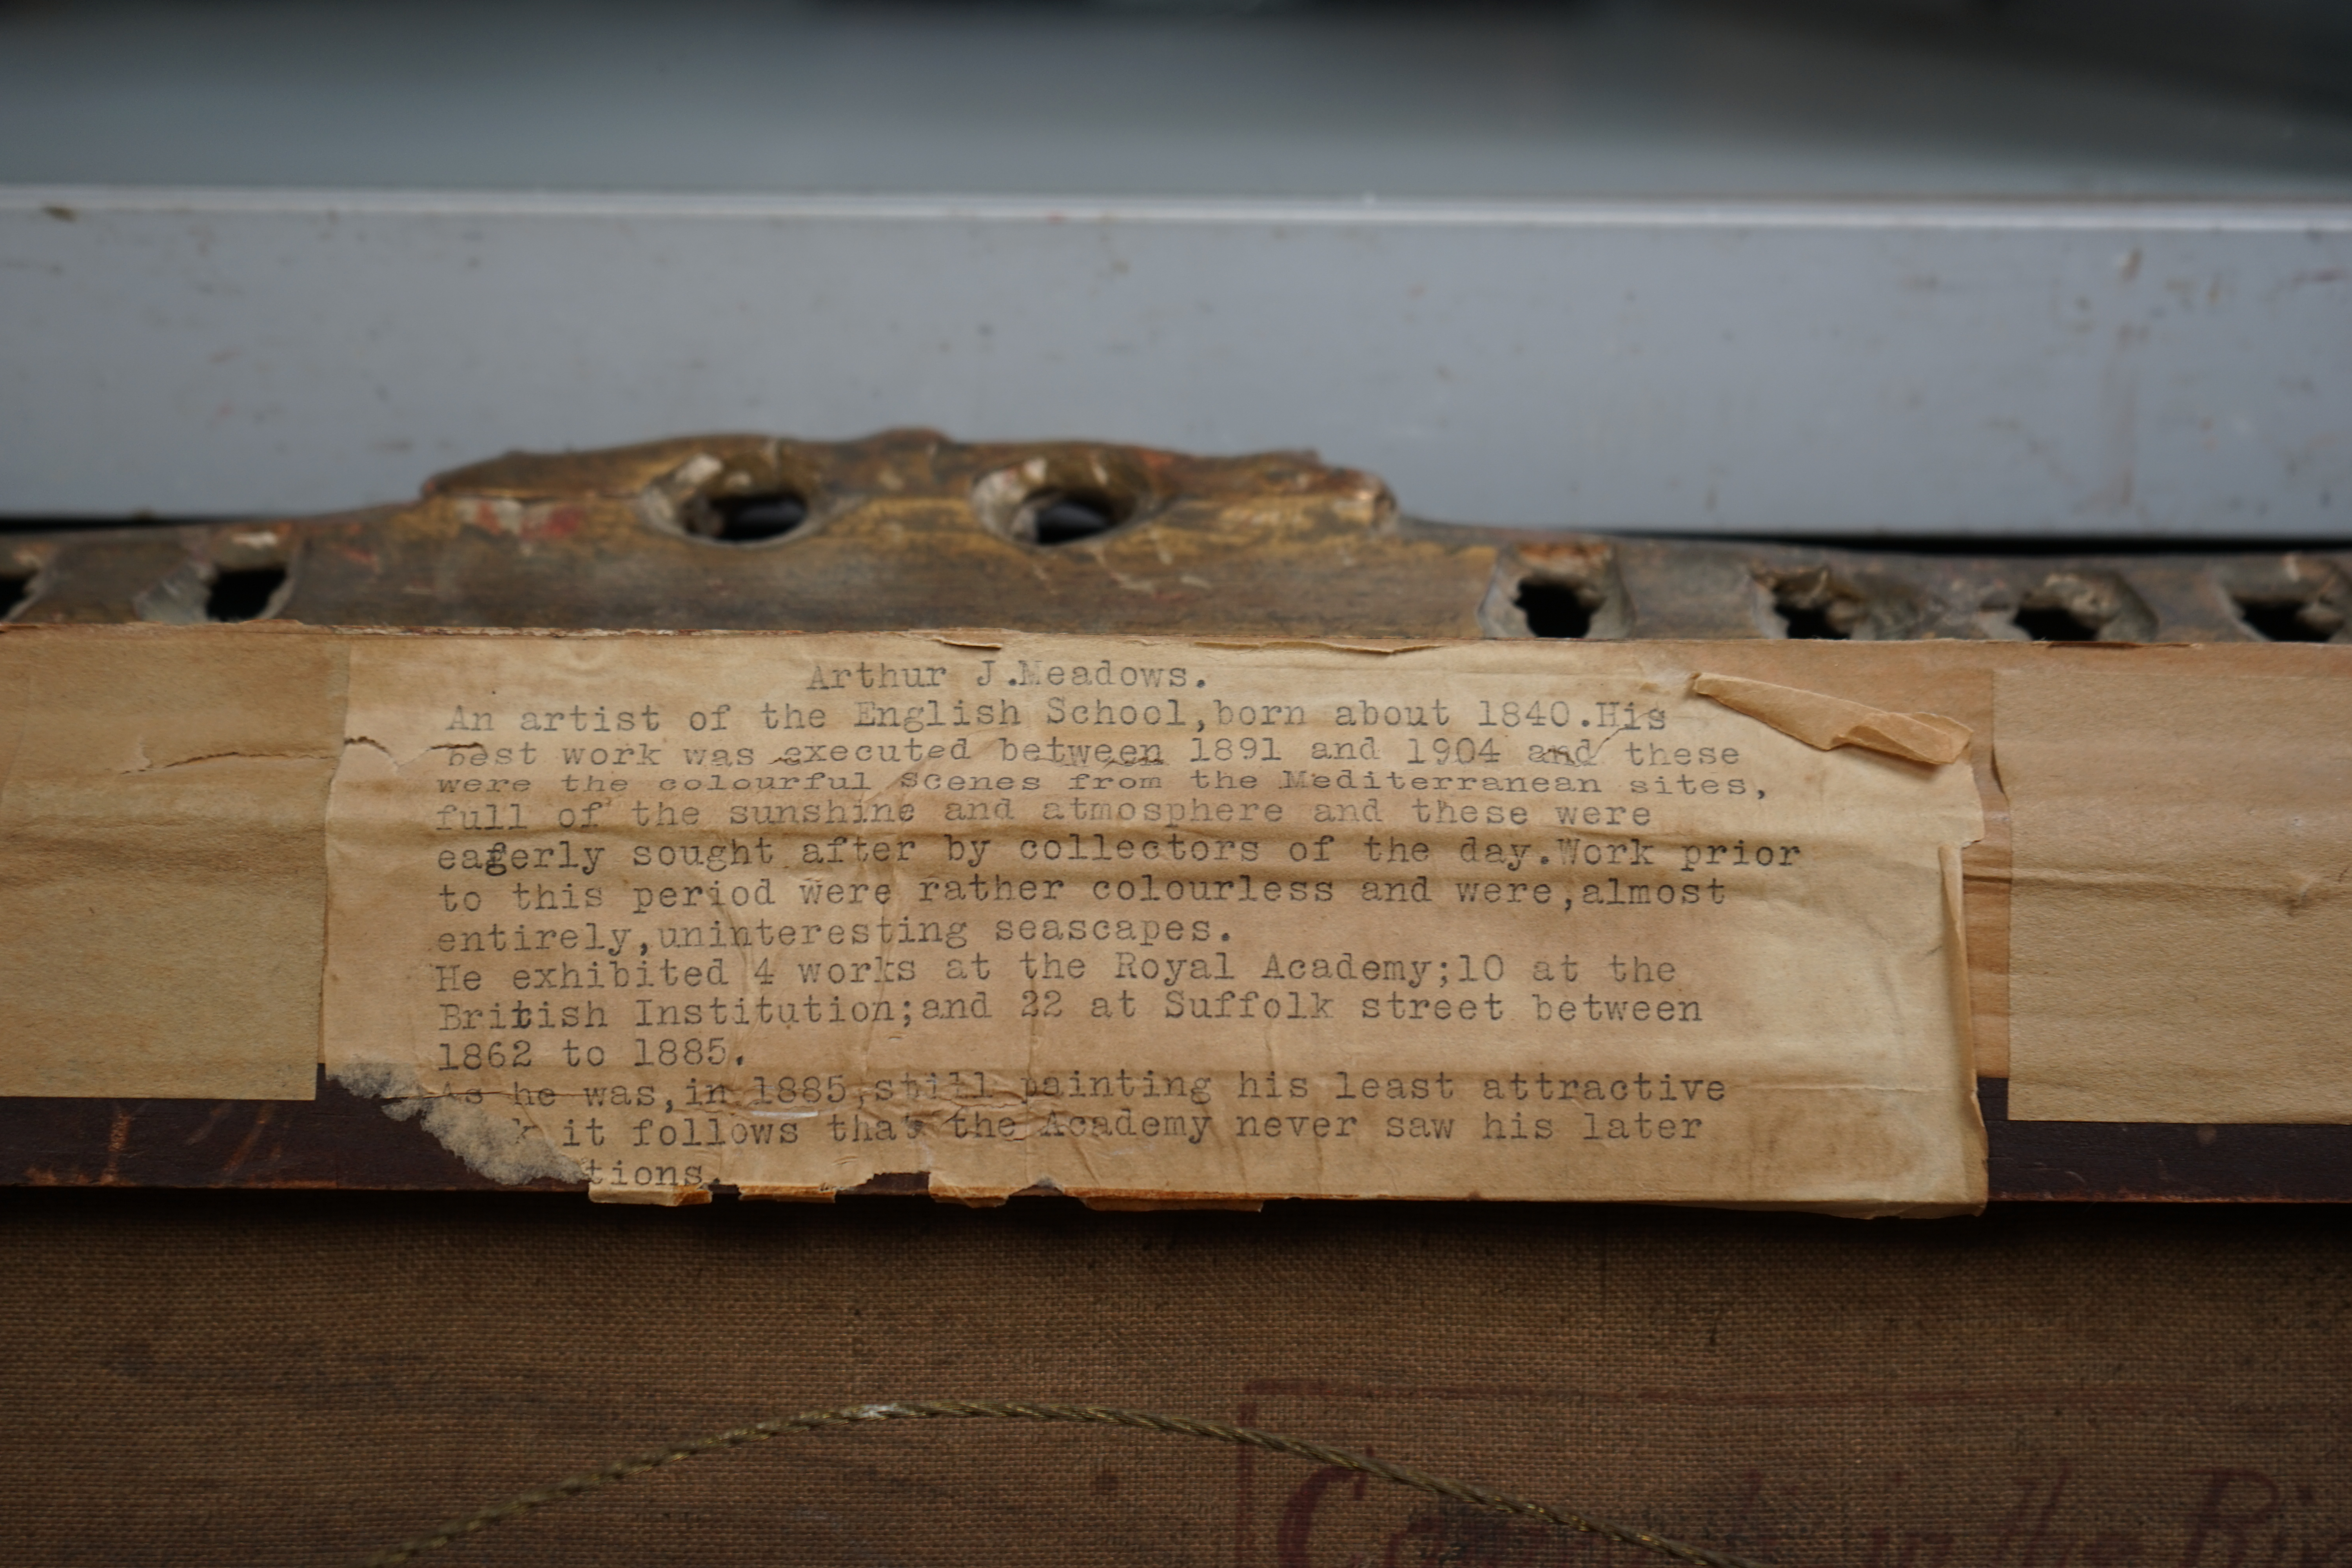 Arthur J.Meadows.
An artist of the English School,born about 1840.His
best work was executed between 1891 and 1904 and these
were the colourful scenes from the Mediterranean sites,
full of the sunshine and atmosphere and these were
eagerly sought after by collectors of the day.Work prior
to this period were rather colourless and were,almost
entirely,uninteresting seascapes.
He exhibited 4 works at the Royal Academy;10 at the
British Institution;and 22 at Suffolk street between
1862 to 1885.
As he was,in 1885,still painting his least attractive
k it follows that the Academy never saw his later
tions.